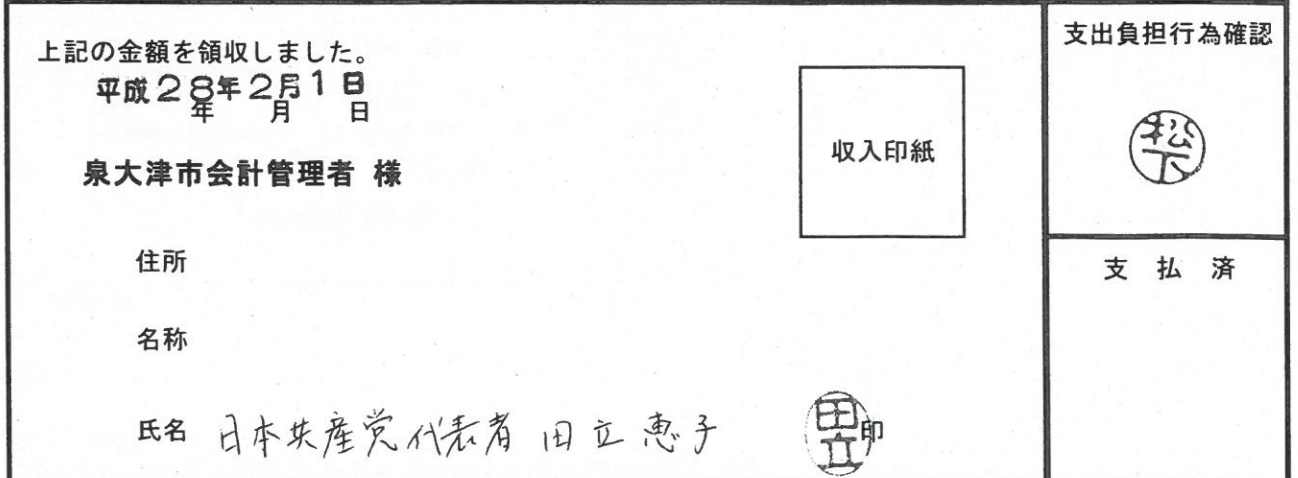 上記の金額を領収しました。
平成28年2月1日
年 月 日
泉大津市会計管理者 様
住所
名称
氏名 日本共産党代表者 田立恵子
田立
印
収入印紙
支出負担行為確認
松下
支 払 済